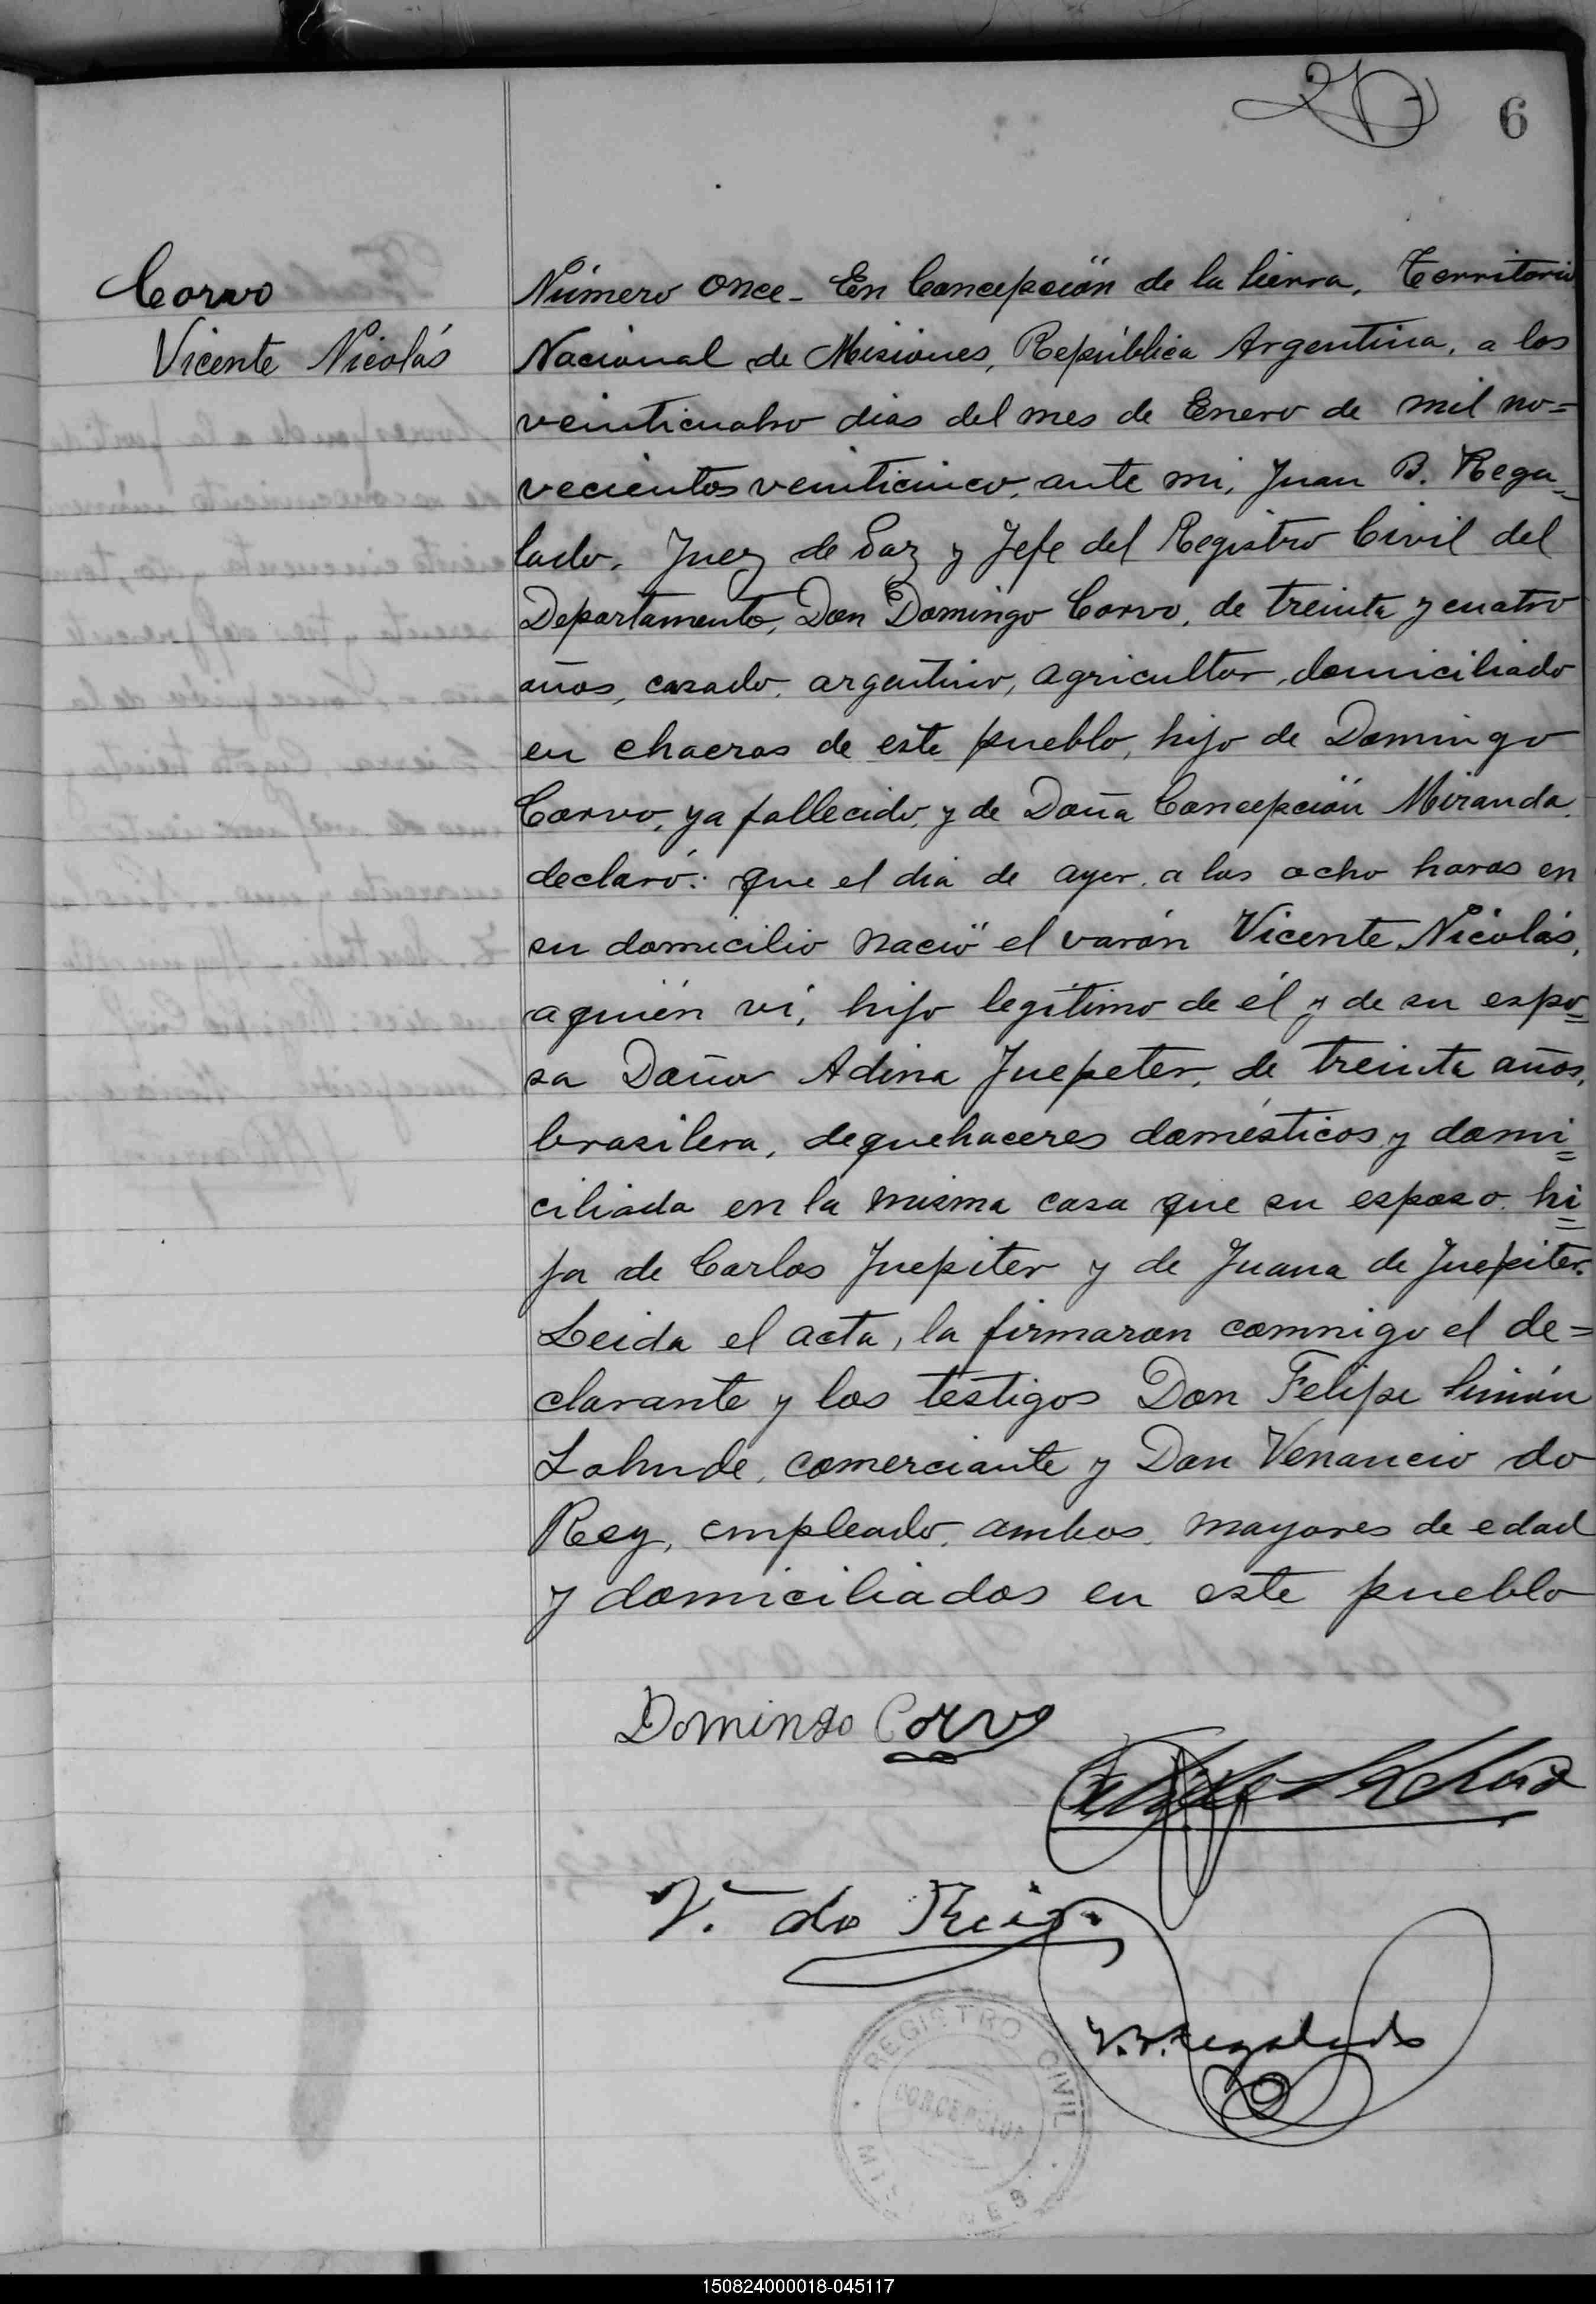 6
Corvo
Vicente Nicolás
Número Once - En Concepción de la Sierra, Territorio
Nacional de Misiones, República Argentina, a los
veinticuatro dias del mes de Enero de mil no=
vecientos veinticinco, ante mi, Juan B. Rega=
lado, Juez de Paz y Jefe del Registro Civil del
Departamento, Don Domingo Corvo, de treinta y cuatro
años, casado, argentino, agricultor, domiciliado
en chacras de este pueblo, hijo de Domingo
Corvo, ya fallecido, y de Doña Concepción Miranda,
declaró: que el dia de ayer, a las ocho horas en
su domicilio nació el varón Vicente Nicolás,
a quién ví, hijo legítimo de él y de su espo=
sa Doña Adina Juepeter, de treinta años,
brasilera, de quehaceres domésticos y domi=
ciliada en la misma casa que su esposo, hi=
ja de Carlos Juepiter y de Juana de Juepiter.
Leida el acta, la firmaron conmigo el de=
clarante y los testigos Don Felipe Simón
Lahude, comerciante y Don Venancio do
Rey, empleado, ambos mayores de edad
y domiciliados en este pueblo
Domingo Corvo
V. do Reis.
J.B. Regalado
REGISTRO CIVIL
CONCEPCION
150824000018-045117